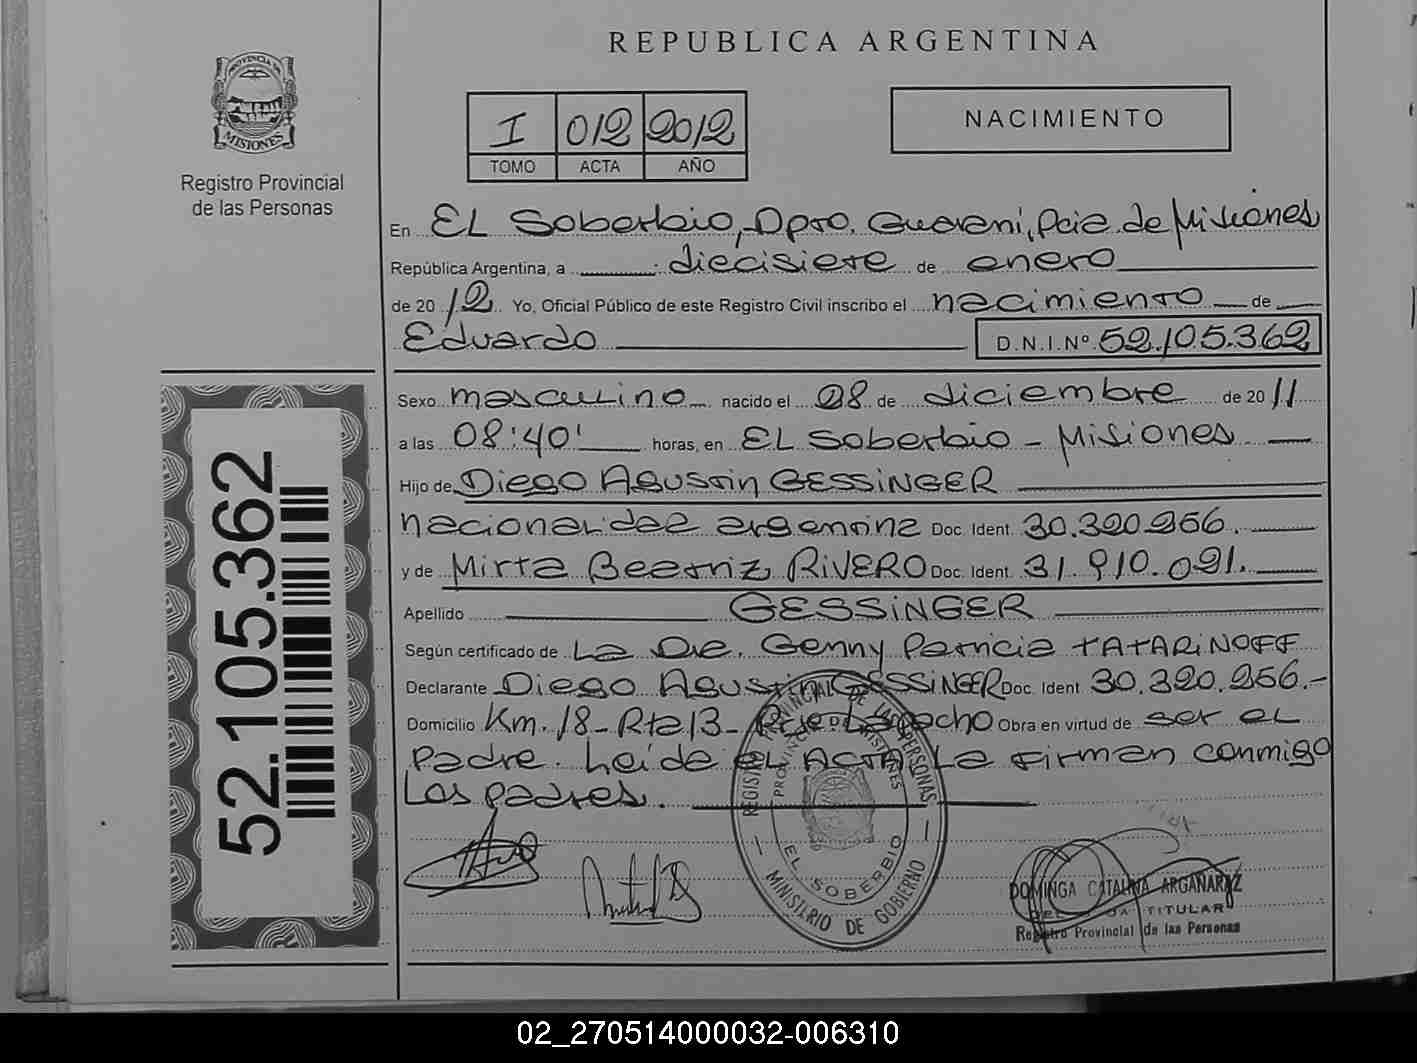 REPUBLICA ARGENTINA
PROVINCIA DE
MISIONES
Registro Provincial
de las Personas
I 012 2012
TOMO ACTA AÑO
NACIMIENTO
En EL Soberbio, Dpto. Guaraní, Pcia. de Misiones
República Argentina, a diecisiete de enero
de 20 12 Yo, Oficial Público de este Registro Civil inscribo el nacimiento de
Eduardo D.N.I.Nº 52.105.362
Sexo masculino nacido el 08 de diciembre de 20 11
a las 08:40' horas, en EL Soberbio - Misiones.
Hijo de Diego Agustin GESSiNGER
nacionalidad argentina Doc. Ident. 30.320.256.
y de Mirta Beatriz RiVERO Doc. Ident. 31.910.091.
Apellido GESSiNGER
Según certificado de La Dra. Genny Patricia TATARiNOFF
Declarante Diego Agustin GESSiNGER Doc. Ident 30.320.256.-
Domicilio Km. 18 - Rta 13 - Pje. Lapacho Obra en virtud de ser el
Padre. Leída el ACTA La firman conmigo
Los padres.
52.105.362
REGISTRO PROVINCIAL DE LAS PERSONAS
PROVINCIA DE MISIONES
EL SOBERBIO
MINISTERIO DE GOBIERNO
DOMINGA CATALINA ARGAÑARAZ
TITULAR
Registro Provincial de las Personas
02_270514000032-006310